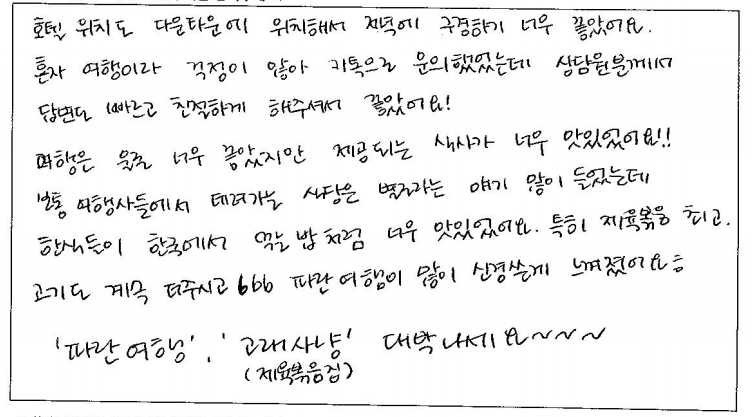 호텔 위치도 다운타운에 위치해서 저녁에 구경하기 너무 좋았어요.
혼자 여행이라 걱정이 많아 카톡으로 문의했었는데 상담원분께서
답변도 빠르고 친절하게 해주셔서 좋았어요!
여행은 물론 너무 좋았지만 제공되는 식사가 너무 맛있었어요!!
보통 여행사들에서 데려가는 식당은 별로라는 얘기 많이 들었는데
한식들이 한국에서 먹는 밥처럼 너무 맛있었어요. 특히 제육볶음 최고.
고기도 계속 더주시고 bbb 파란여행이 많이 신경쓴게 느껴졌어요
'파란여행', '고래사냥' 대박나세요~~~~
(제육볶음집)